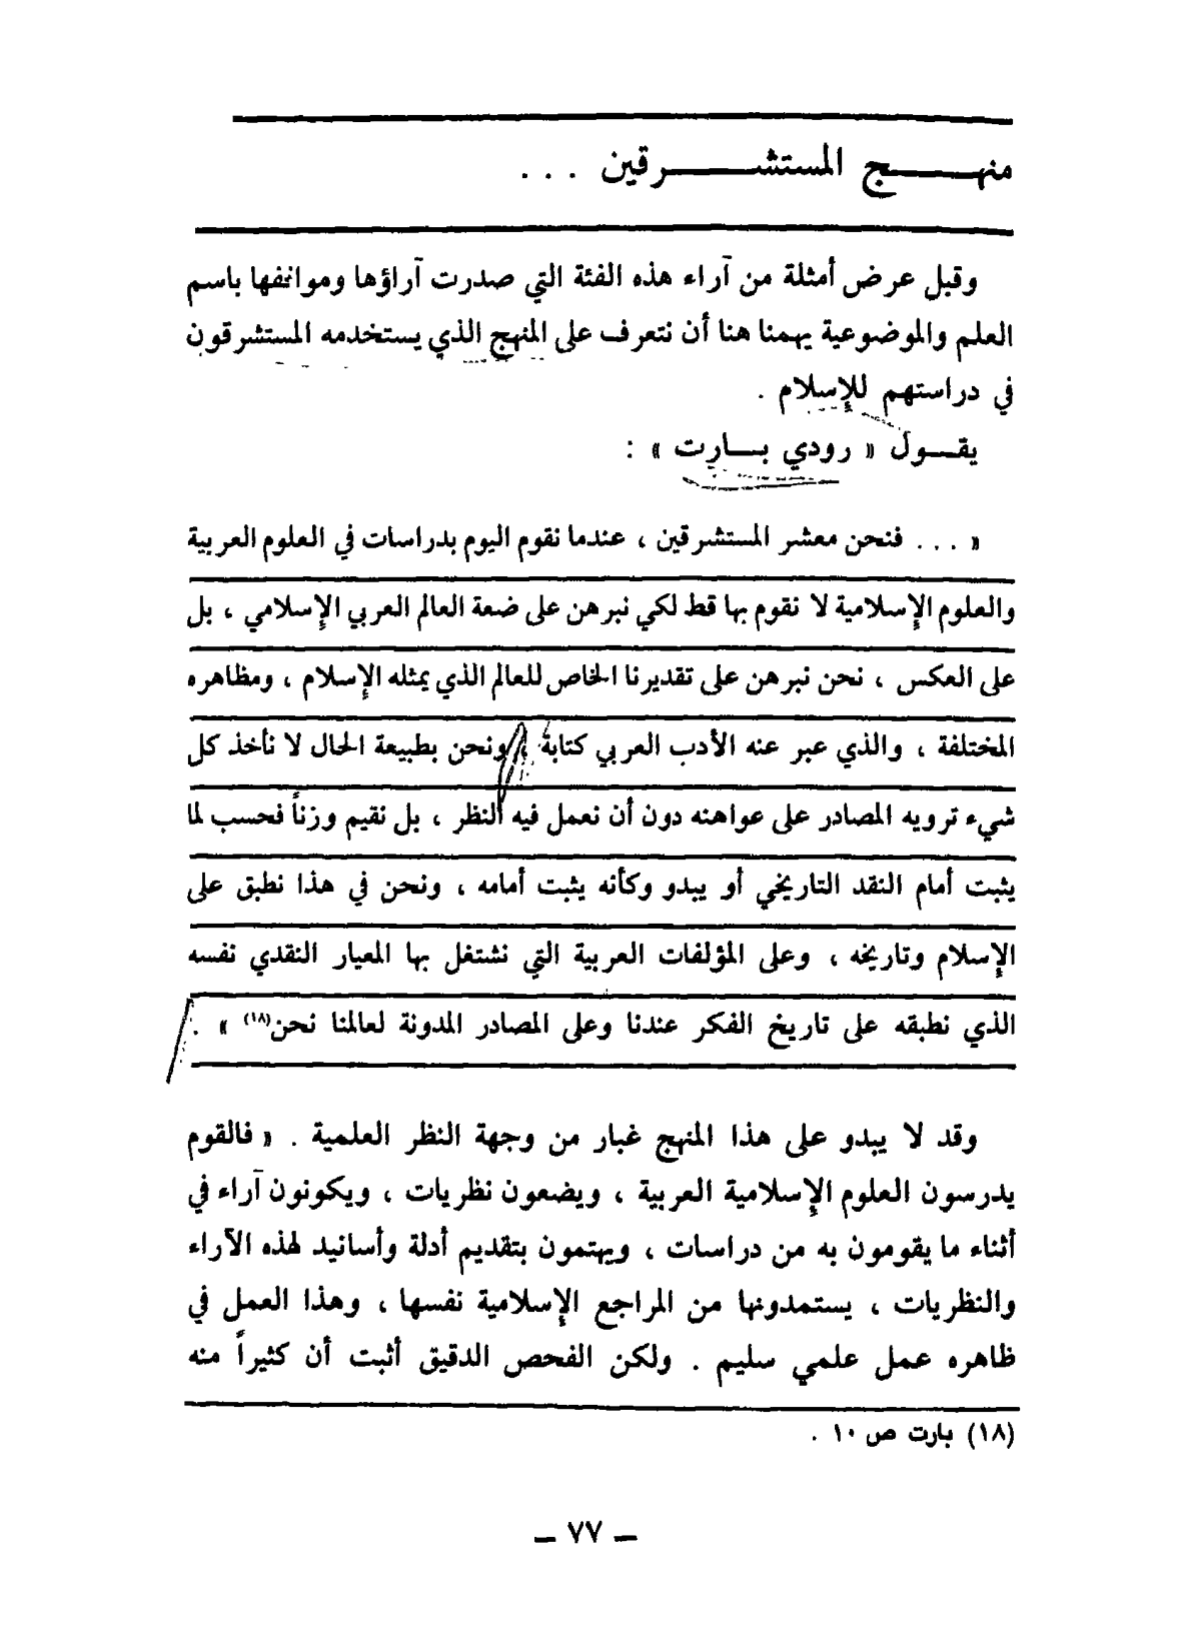 منهج المستشرقين ...
وقبل عرض أمثلة من آراء هذه الفئة التي صدرت آراؤها ومواقفها باسم
العلم والموضوعية يهمنا هنا أن نتعرف على المنهج الذي يستخدمه المستشرقون
في دراستهم للإسلام .
يقول « رودي بارت » :
« ... فنحن معشر المستشرقين ، عندما نقوم اليوم بدراسات في العلوم العربية
والعلوم الإسلامية لا نقوم بها قط لكي نبرهن على ضعة العالم العربي الإسلامي ، بل
على العكس ، نحن نبرهن على تقديرنا الخاص للعالم الذي يمثله الإسلام ، ومظاهره
المختلفة ، والذي عبر عنه الأدب العربي كتابة ، ونحن بطبيعة الحال لا نأخذ كل
شيء ترويه المصادر على عواهنه دون أن نعمل فيه النظر ، بل نقيم وزناً فحسب لما
يثبت أمام النقد التاريخي أو يبدو وكأنه يثبت أمامه ، ونحن في هذا نطبق على
الإسلام وتاريخه ، وعلى المؤلفات العربية التي نشتغل بها المعيار النقدي نفسه
الذي نطبقه على تاريخ الفكر عندنا وعلى المصادر المدونة لعالمنا نحن(١٨) » .
وقد لا يبدو على هذا المنهج غبار من وجهة النظر العلمية . « فالقوم
يدرسون العلوم الإسلامية العربية ، ويضعون نظريات ، ويكونون آراء في
أثناء ما يقومون به من دراسات ، ويهتمون بتقديم أدلة وأسانيد لهذه الآراء
والنظريات ، يستمدونها من المراجع الإسلامية نفسها ، وهذا العمل في
ظاهره عمل علمي سليم . ولكن الفحص الدقيق أثبت أن كثيراً منه
(١٨) بارت ص ١٠ .
– ٧٧ –